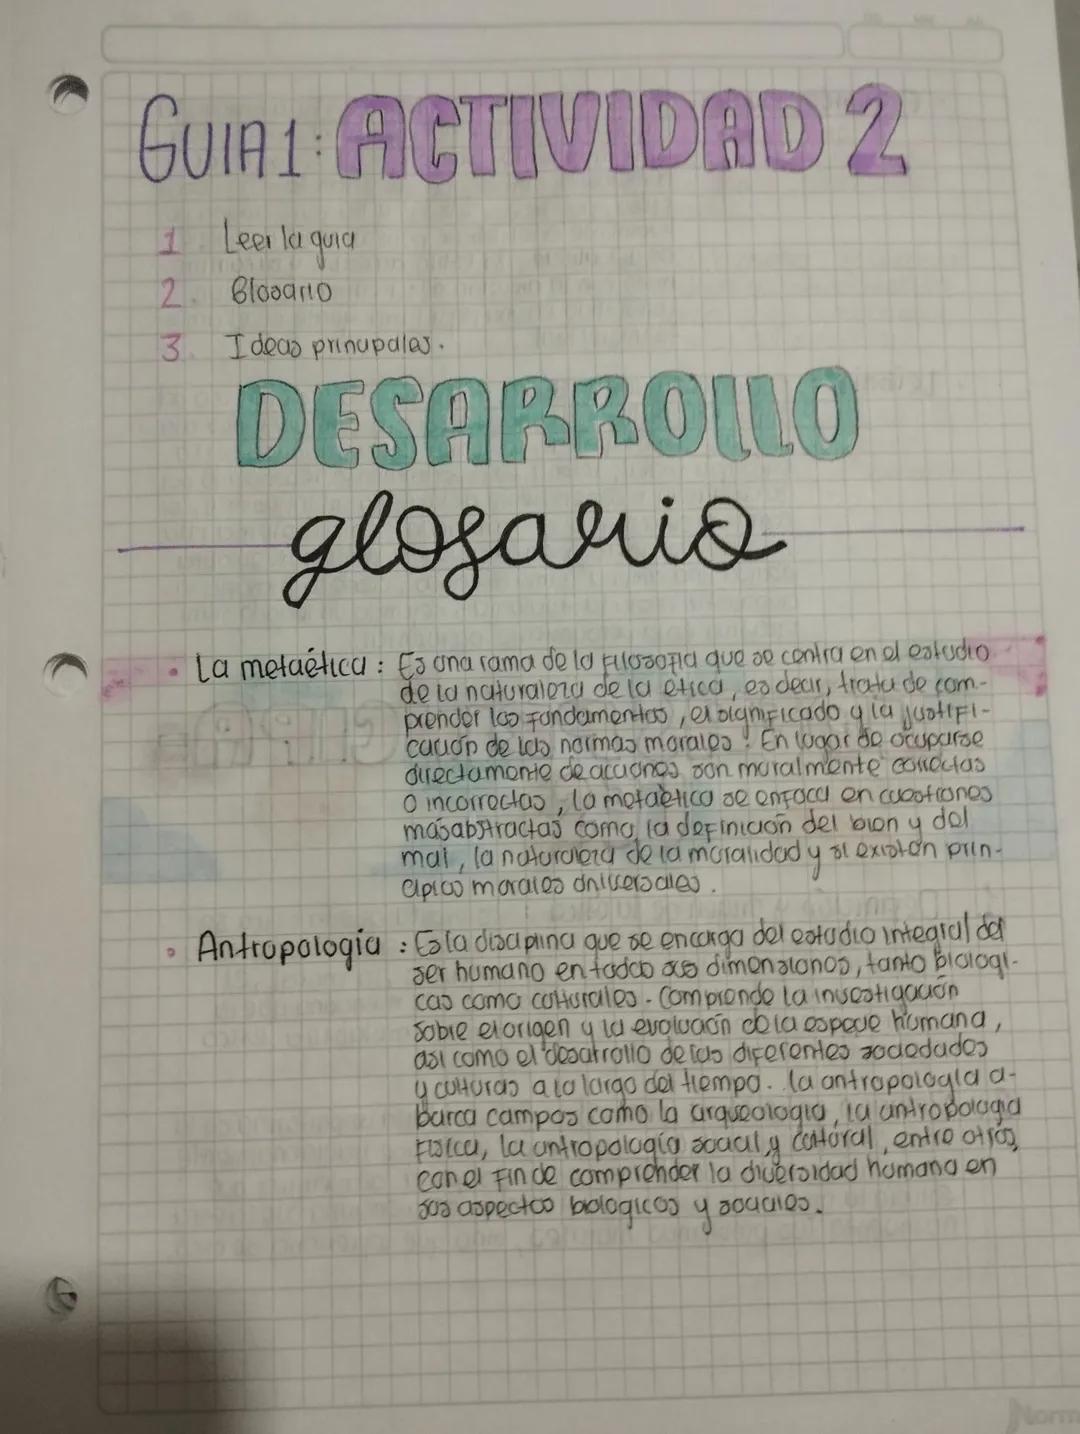 GUIA 1: ACTIVIDAD 2
1 Leer la guia
2. Glosario
3. Ideas principales.
DESARROLLO
glosario
• La metaética: Es una rama de la filosofia que se centra en el estudio
de la naturaleza de la etica, es decir, trata de com-
prender los fundamentos, el significado y la justifi-
cación de las normas morales. En lugar de ocuparse
directamente de acciones son moralmente correctas
o incorrectas, la metaética se enfoca en cuestiones
más abstractas como, la definición del bien y del
mal, la naturaleza de la moralidad y si existen prin-
cipios morales universales.
• Antropología: Es la disciplina que se encarga del estudio integral del
ser humano en todas sus dimensiones, tanto biologi-
cas como culturales. Comprende la investigación
sobre el origen y la evolución de la especie humana,
asi como el desarrollo de las diferentes sociedades
y culturas a lo largo del tiempo. la antropologia a-
barca campos como la arqueologia, la antropologia
fisica, la antropología social y cultural, entre otros,
con el fin de comprender la diversidad humana en
sus aspectos biologicos y sociales.
Norm